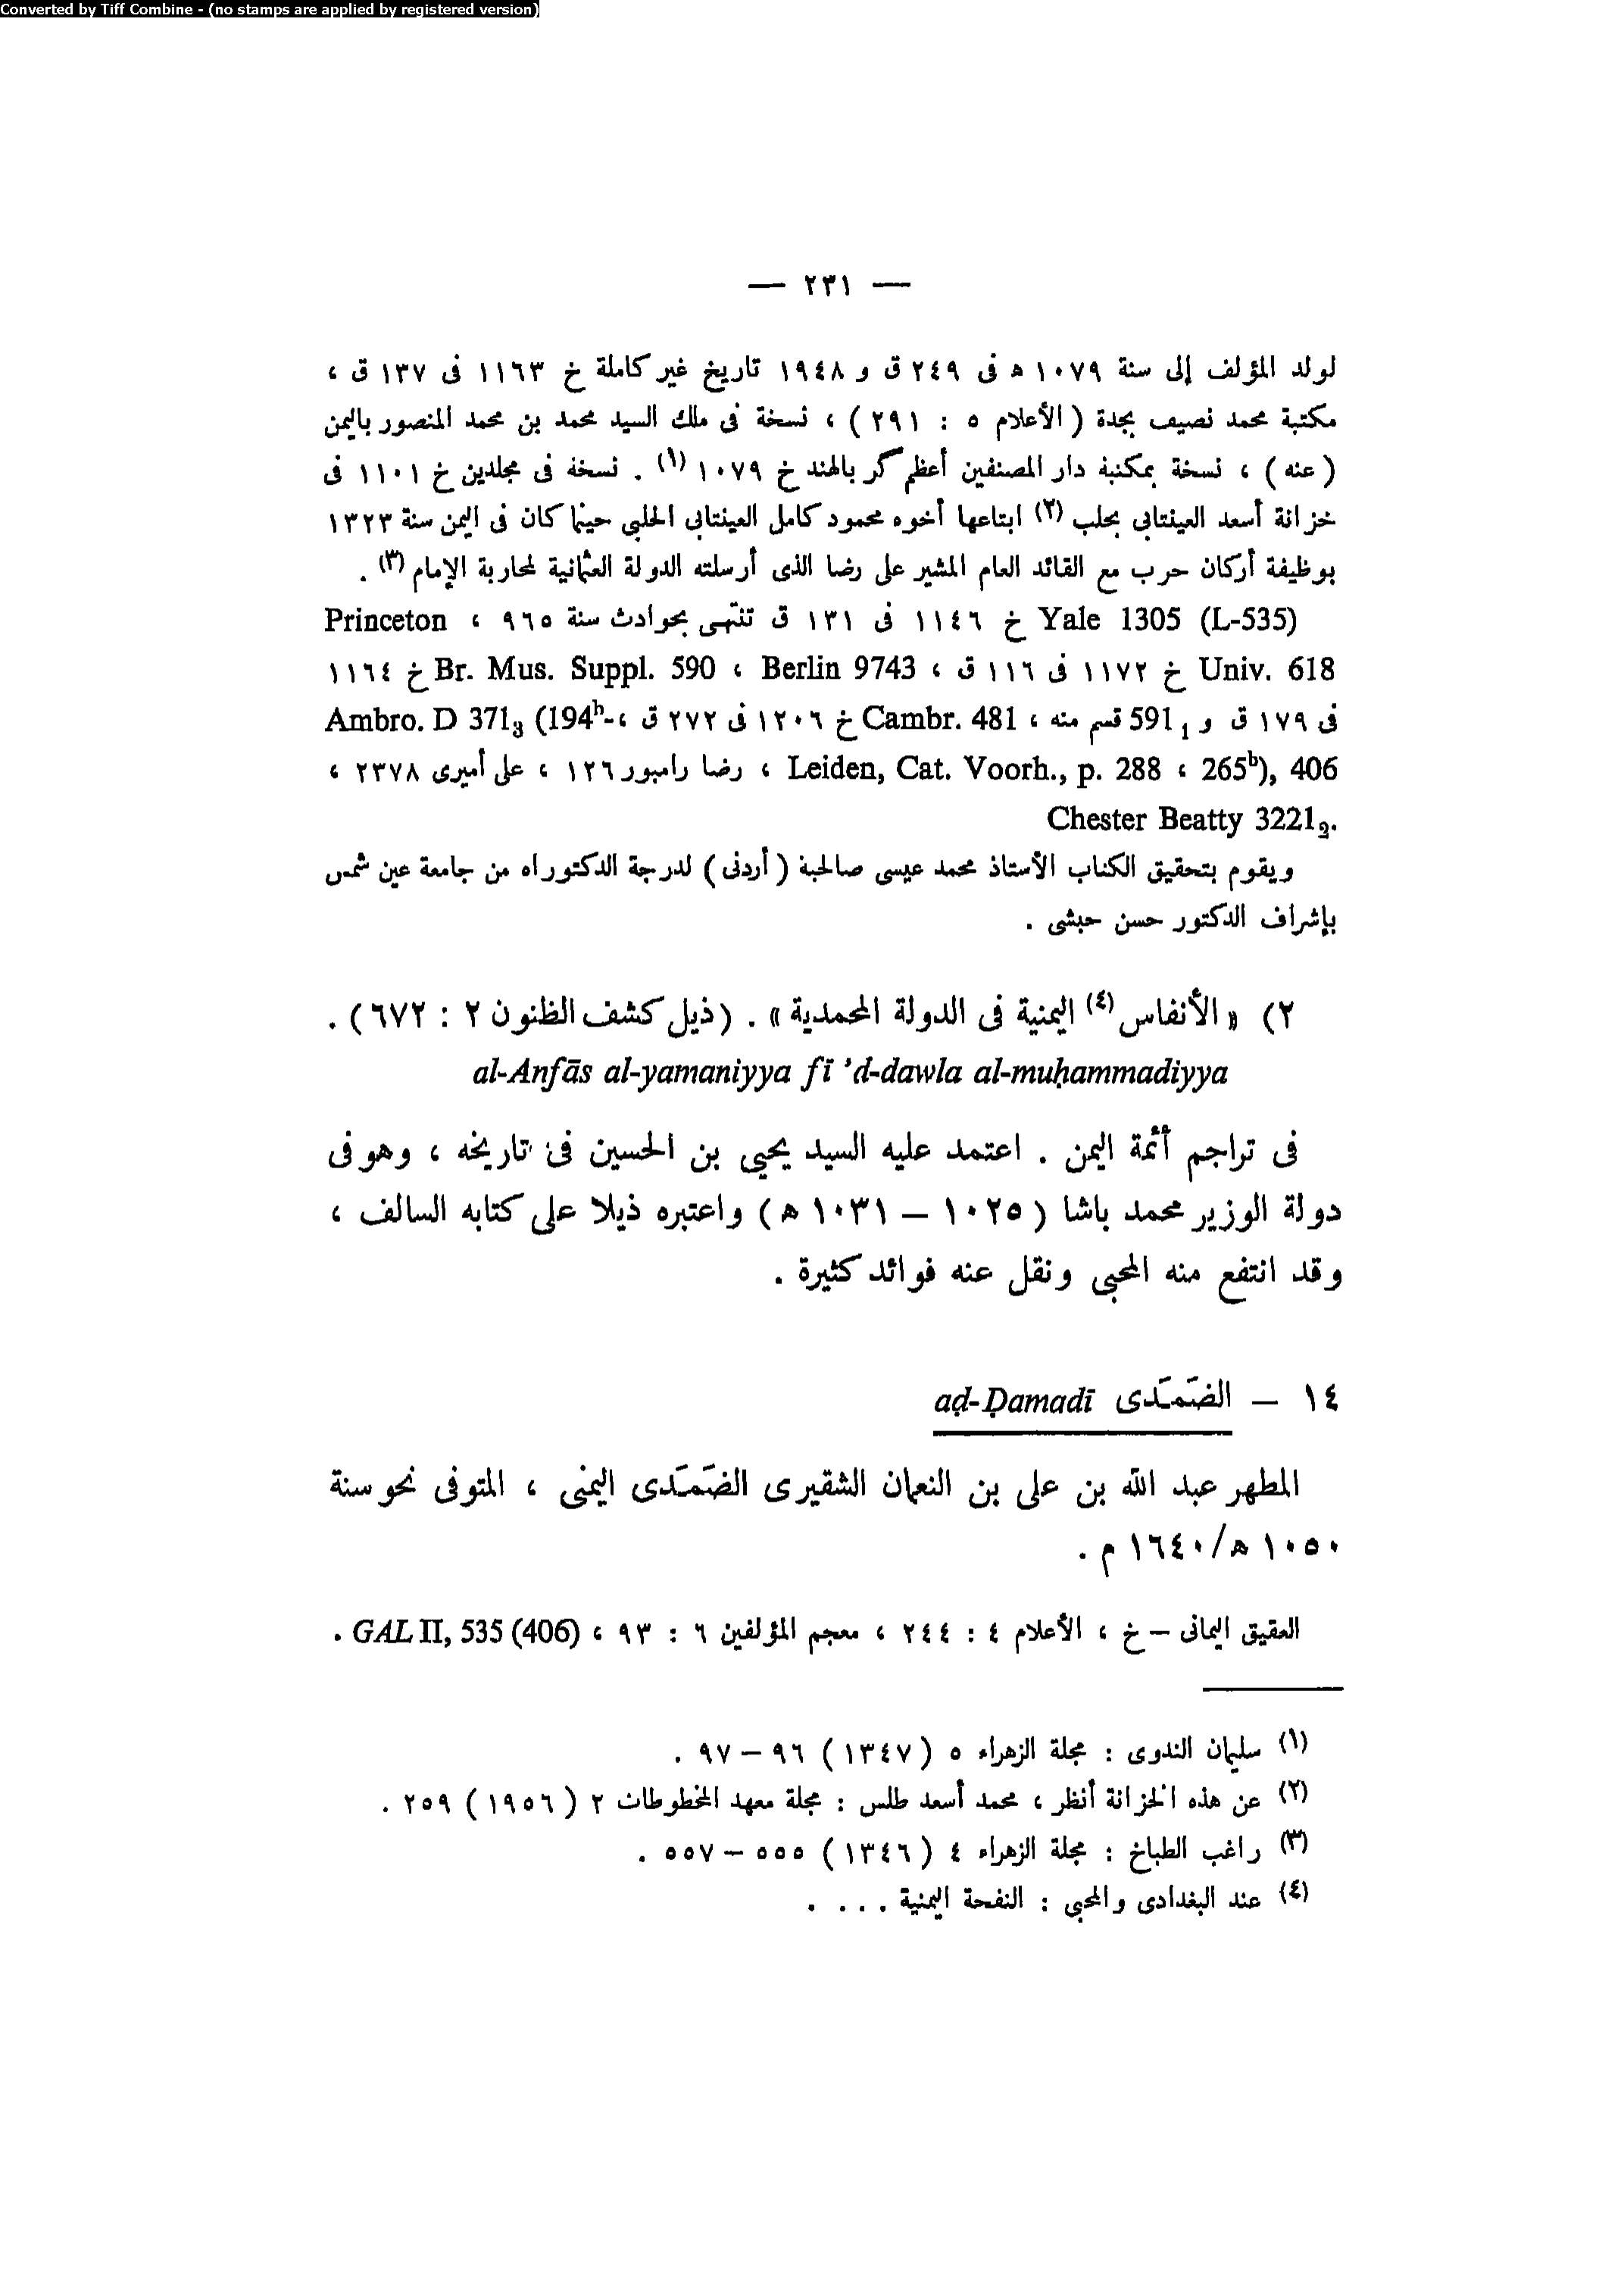 Converted by Tiff Combine - (no stamps are applied by registered version)
— ٢٣١ —
لولد المؤلف إلى سنة ١٠٧٩ ه فى ٢٤٩ ق و ١٩٤٨ تاريخ غير كاملة خ ١١٦٣ فى ١٣٧ ق ،
مكتبة محمد نصيف بجدة ( الأعلام ٥ : ٢٩١ ) ، نسخة فى ملك السيد محمد بن محمد المنصور باليمن
( عنه ) ، نسخة بمكتبة دار المصنفين أعظم كر بالهند خ ١٠٧٩ (١) . نسخة فى مجلدين خ ١١٠١ فى
خزانة أسعد العينتابى بحلب (٢) ابتاعها أخوه محمود كامل العينتابى الحلبى حينما كان فى اليمن سنة ١٣٢٣
بوظيفة أركان حرب مع القائد العام المشير على رضا الذى أرسلته الدولة العثمانية لمحاربة الإمام (٣) .
Yale 1305 (L-535) خ ١١٤٦ فى ١٣١ ق تنتهى بحوادث سنة ٩٦٥ ، Princeton
Univ. 618 خ ١١٧٢ فى ١١٦ ق ، Berlin 9743 ، Br. Mus. Suppl. 590 خ ١١٦٤
فى ١٧٩ ق و 591₁ قسم منه ، Cambr. 481 خ ١٢٠٦ فى ٢٧٢ ق ، Ambro. D 371₃ (194ʰ-
265ᵇ), 406 ، Leiden, Cat. Voorh., p. 288 ، رضا رامبور ١٢٦ ، على أميرى ٢٣٧٨ ،
Chester Beatty 3221₂.
ويقوم بتحقيق الكتاب الأستاذ محمد عيسى صالحية ( أردنى ) لدرجة الدكتوراه من جامعة عين شمس
بإشراف الدكتور حسن حبشى .
٢) « الأنفاس (٤) اليمنية فى الدولة المحمدية » . (ذيل كشف الظنون ٢ : ٦٧٢) .
al-Anfās al-yamaniyya fī ’d-dawla al-muḥammadiyya
فى تراجم أئمة اليمن . اعتمد عليه السيد يحيى بن الحسين فى تاريخه ، وهو فى
دولة الوزير محمد باشا ( ١٠٢٥ – ١٠٣١ ه ) واعتبره ذيلا على كتابه السالف ،
وقد انتفع منه المحبى ونقل عنه فوائد كثيرة .
١٤ – الضَمَدى aḍ-Ḍamadī
المطهر عبد الله بن على بن النعمان الشقيرى الضَمَدى اليمنى ، المتوفى نحو سنة
١٠٥٠ ه/١٦٤٠ م .
العقيق اليمانى – خ ، الأعلام ٤ : ٢٤٤ ، معجم المؤلفين ٦ : ٩٣ ، GAL II, 535 (406) .
(١) سليمان الندوى : مجلة الزهراء ٥ ( ١٣٤٧ ) ٩٦ – ٩٧ .
(٢) عن هذه الخزانة أنظر ، محمد أسعد طلس : مجلة معهد المخطوطات ٢ ( ١٩٥٦ ) ٢٥٩ .
(٣) راغب الطباخ : مجلة الزهراء ٤ ( ١٣٤٦ ) ٥٥٥ – ٥٥٧ .
(٤) عند البغدادى والمحبى : النفحة اليمنية . . . .